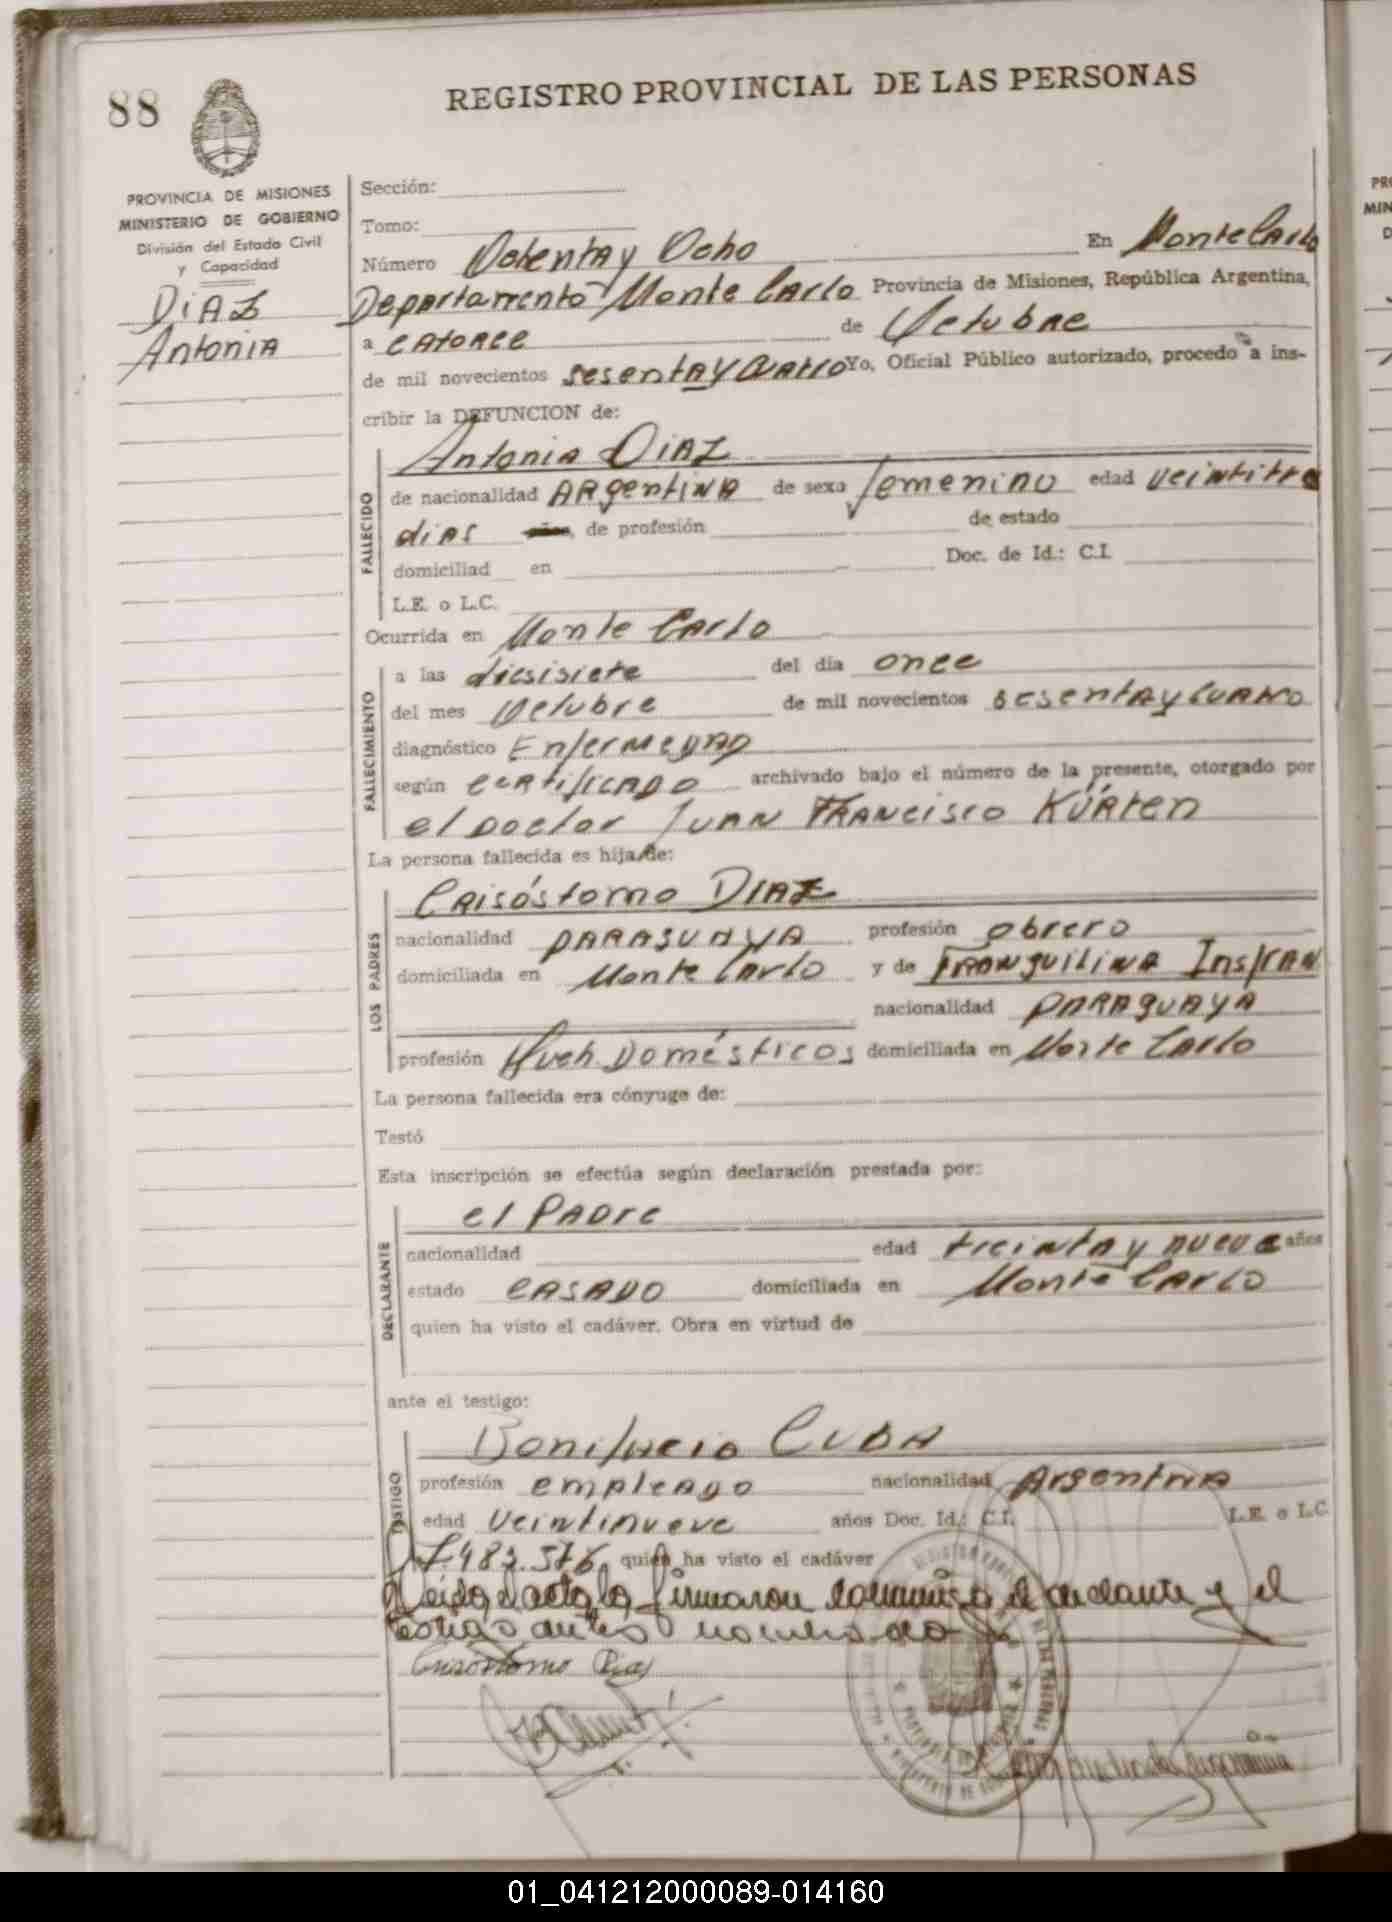 88
REGISTRO PROVINCIAL DE LAS PERSONAS
PROVINCIA DE MISIONES
MINISTERIO DE GOBIERNO
División del Estado Civil
y Capacidad
DiAZ
Antonia
Sección:
Tomo:
Número Ochenta y Ocho En Monte Carlo
Departamento Monte Carlo Provincia de Misiones, República Argentina,
a catorce de Octubre
de mil novecientos sesenta y cuatro Yo, Oficial Público autorizado, procedo a ins-
cribir la DEFUNCION de:
Antonia DiAZ
FALLECIDO
de nacionalidad Argentina de sexo femenino edad veintitre
dias años, de profesión de estado
domiciliad en Doc. de Id.: C.I.
L.E. o L.C.
Ocurrida en Monte Carlo
FALLECIMIENTO
a las diesisiete del día once
del mes Octubre de mil novecientos sesenta y cuatro
diagnóstico Enfermedad
según certificado archivado bajo el número de la presente, otorgado por
el Doctor Juan Francisco Kúrten
La persona fallecida es hija de:
LOS PADRES
Crisóstomo DIAZ
nacionalidad paraguaya profesión obrero
domiciliada en Monte Carlo y de Tranquilina Insfran
nacionalidad paraguaya
profesión Queh. Domésticos domiciliada en Monte Carlo
La persona fallecida era cónyuge de:
Testó
Esta inscripción se efectúa según declaración prestada por:
DECLARANTE
el Padre
nacionalidad edad treinta y nueve años
estado casado domiciliada en Monte Carlo
quien ha visto el cadáver. Obra en virtud de
ante el testigo:
TESTIGO
Bonifacio Cuba
profesión empleado nacionalidad Argentina
edad veintinueve años Doc. Id.: C.I. L.E. o L.C.
7.483.576 quien ha visto el cadáver
Leida el acta la firmaron conmigo el declarante y el
testigo antes nombrado
Crisostomo Diaz
01_041212000089-014160